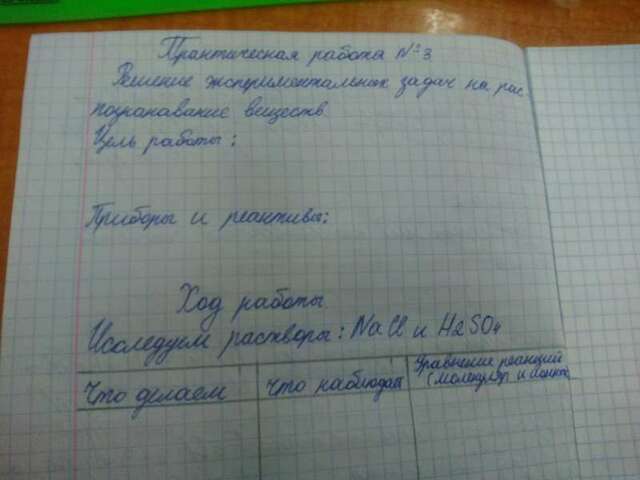 Практическая работа №3
Решение экспериментальных задач на рас
познавание веществ.
Цель работы:
Приборы и реактивы:
Ход работы
Исследуем растворы: NaCl и H2SO4
Что делаем
Что наблюдаем
Уравнение реакций
(молекуляр и ионно)